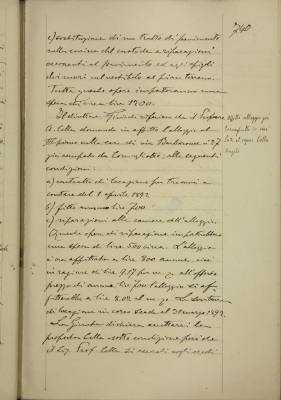 740
c) sostituzione di un tratto di pavimento
nella cucina del custode e riparazioni
occorrenti al pavimento ed agli spigoli
dei muri nel vestibolo al piano terreno.
Tutte queste opere importeranno una
spesa di circa lire 1200.
Il direttore riferisce che il Professore
G. Lolla domanda in affitto l'alloggio al
III piano nella casa di via Barbaroux n. 27
già occupato da alle seguenti
condizioni:
a) contratto di locazione per tre anni a
contare dal 1 aprile 1892
b) fitto annuo lire 700
c) riparazioni alle camere dell'alloggio.
Queste opere di riparazione importebbero
una spesa di lire 500 circa. L'alloggio
era affittato a lire 800 annue, cioè
in ragione di lire 9.17 per m. q. all'offerto
prezzo di annue lire 700 l'alloggio si af-
fitterebbe a lire 8.02 al m. q. La scrittura
di locazione in corso scade al 31 marzo 1892.
La Giunta dichiara accettarsi la
proposta Lolla sotto condizione però che
il Sig. Prof. Lolla si accordi cogli eredi
Affitto alloggio già
in casa